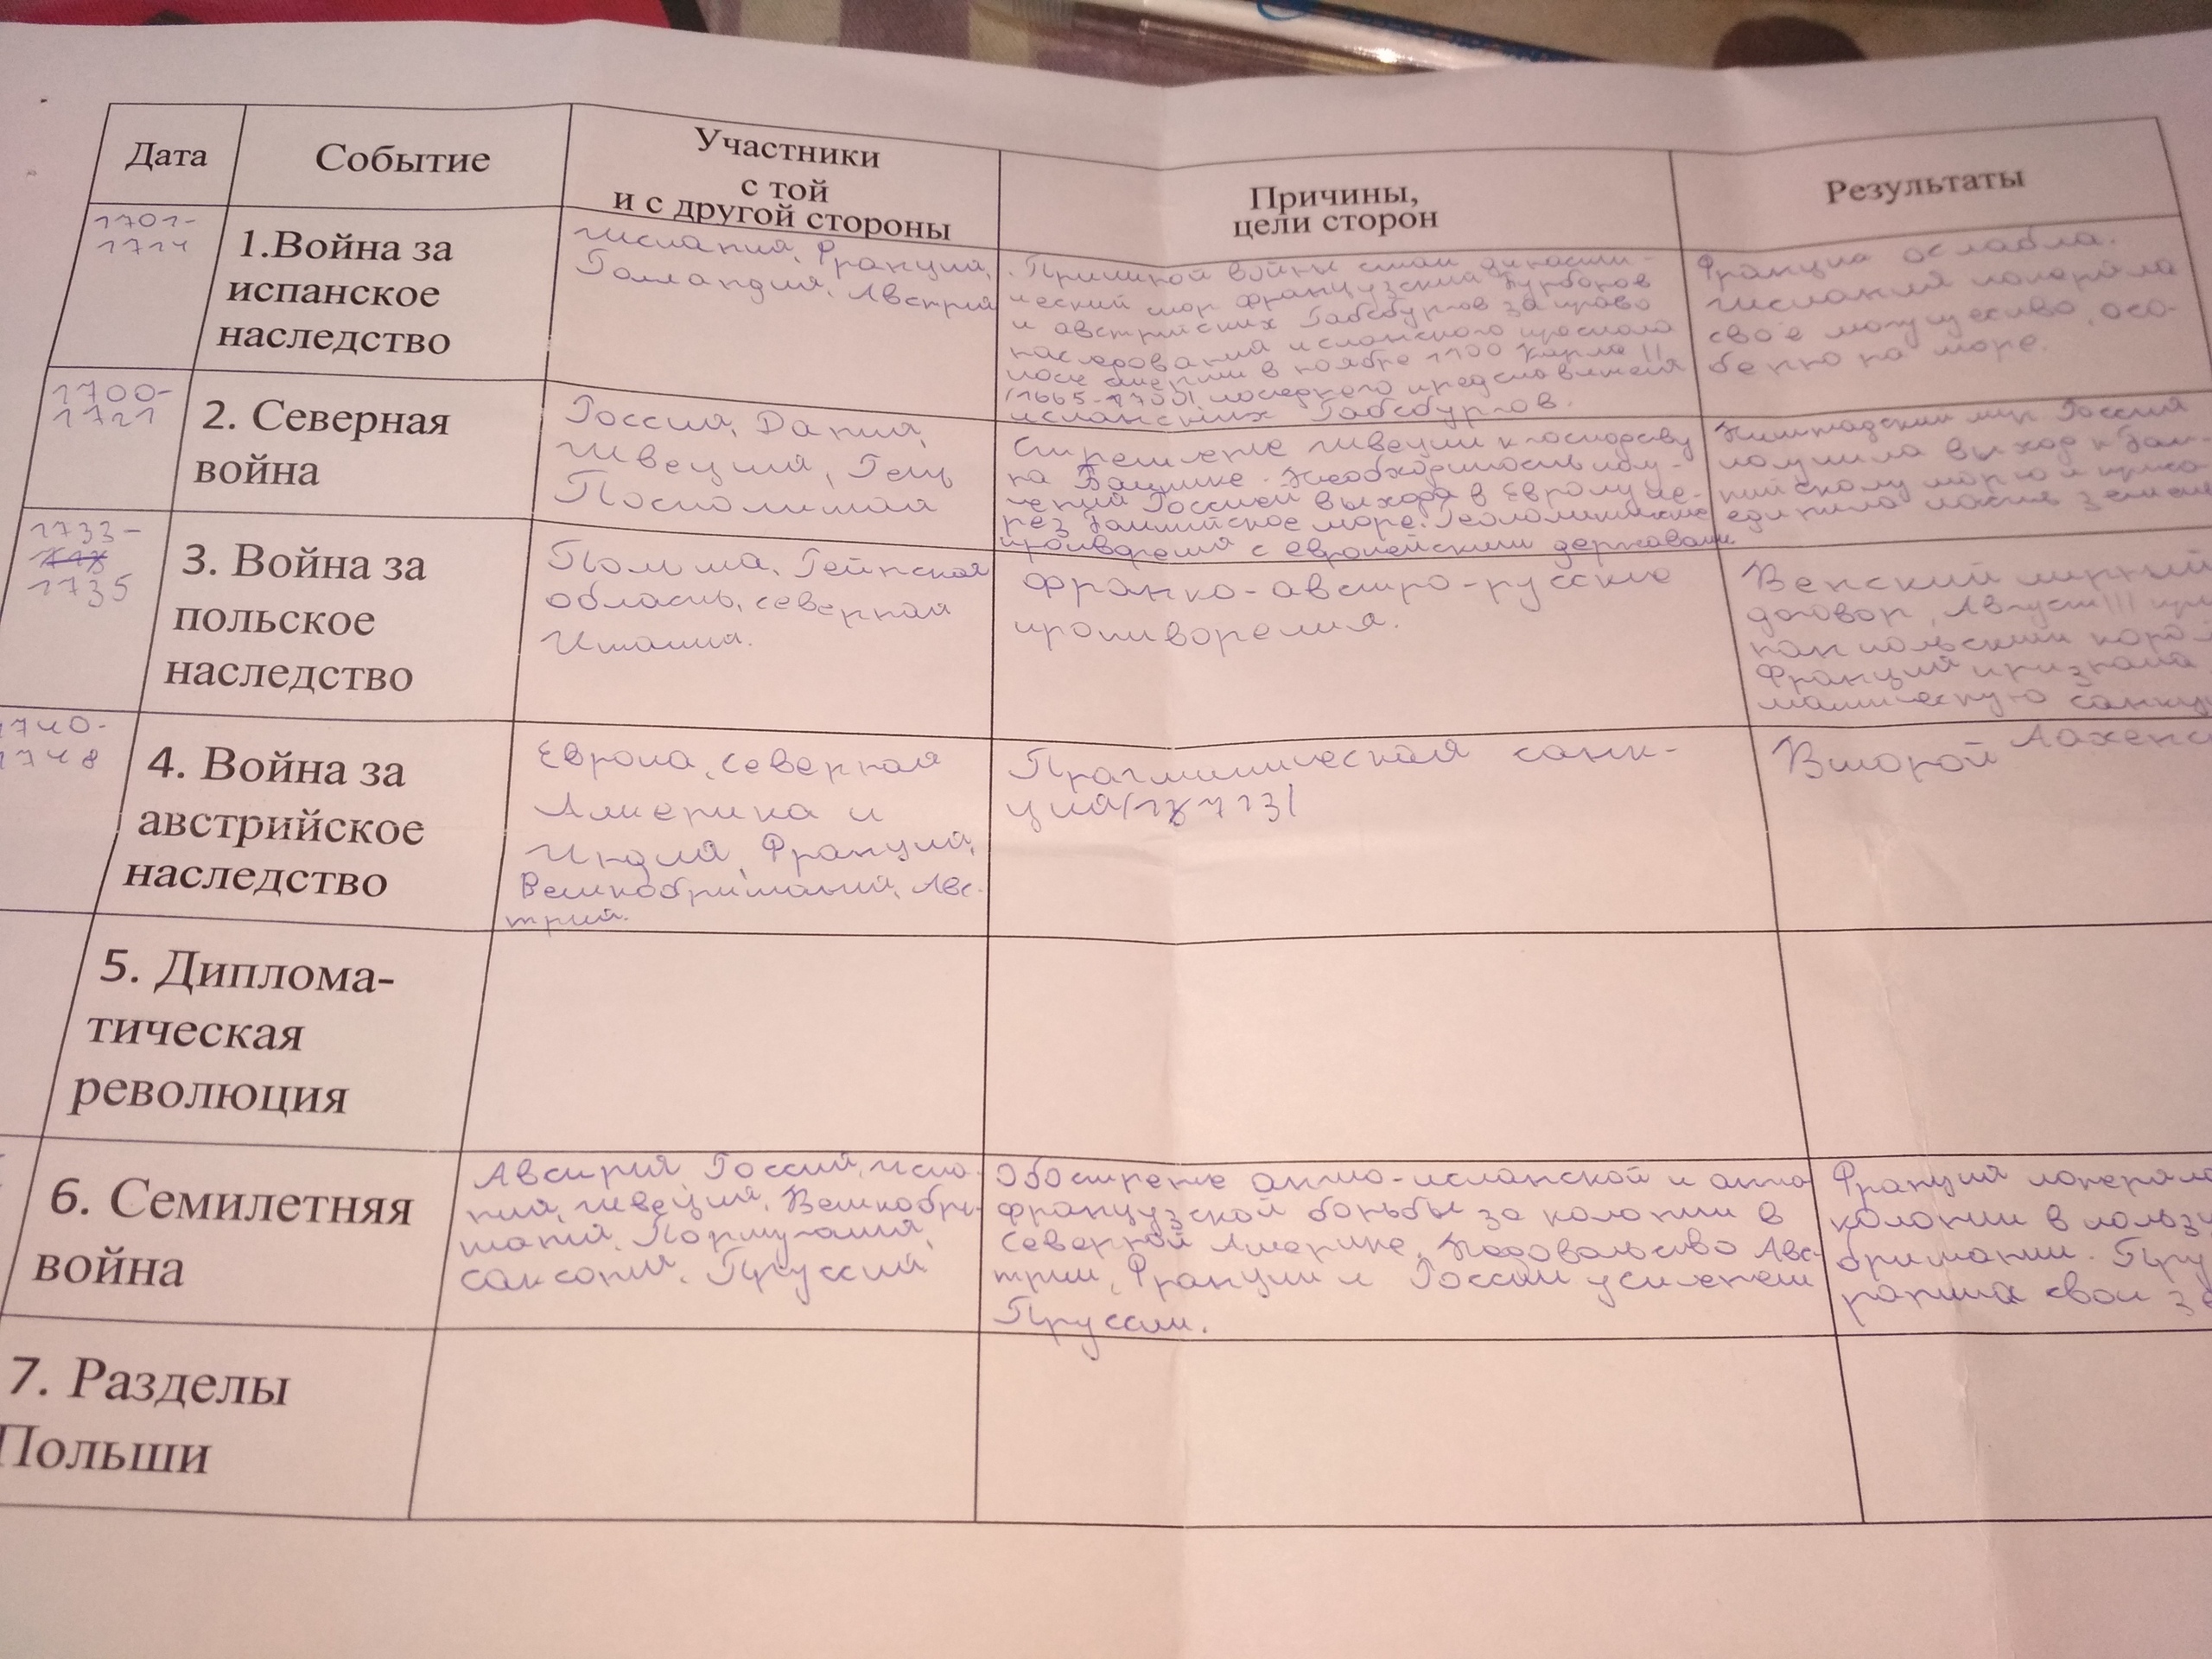 Дата
Событие
Участники
с той
и с другой стороны
Причины,
цели сторон
Результаты
1701-
1714
1.Война за
испанское
наследство
Испания, Франция,
Голландия, Австрия
Причиной войны стал династи-
ческий спор французских Бурбонов
и австрийских Габсбургов за право
наследования испанского престола
после смерти в ноябре 1700 Карла II
(1665-1700) последнего представителя
испанских Габсбургов.
Франция ослабла.
Испания потеряла
своё могущество, осо-
бенно на море.
1700-
1721
2. Северная
война
Россия, Дания,
Швеция, Речь
Посполитая
Стремление Швеции к господству
на Балтике. Необходимость полу-
чения Россией выхода в Европу че-
рез Балтийское море. Геополитические
противоречия с европейскими державами
Ништадский мир. Россия
получила выход к Бал-
тийскому морю и присо-
единила часть земель
1733-
1735
3. Война за
польское
наследство
Польша, Рейнская
область, северная
Италия.
Франко-австро-русские
противоречия.
Венский мирный
договор, Август III
польским
Франция признала
санкц
1740-
1748
4. Война за
австрийское
наследство
Европа, Северная
Америка и
Индия, Франция,
Великобритания, Авс-
трия.
Прагматическая санк-
ция 1713
Второй Аахенс
5. Диплома-
тическая
революция
6. Семилетняя
война
Австрия Россия, Испа-
ния, Швеция, Великобри-
тания, Португалия,
Саксония, Пруссия
Обострение англо-испанской и англо
французской борьбы за колонии в
Северной Америке, Недовольство Авс-
трии, Франции и России усилением
Пруссии.
Франция потеряла
колонии в польз
британии. Пру
свои з
7. Разделы
Польши